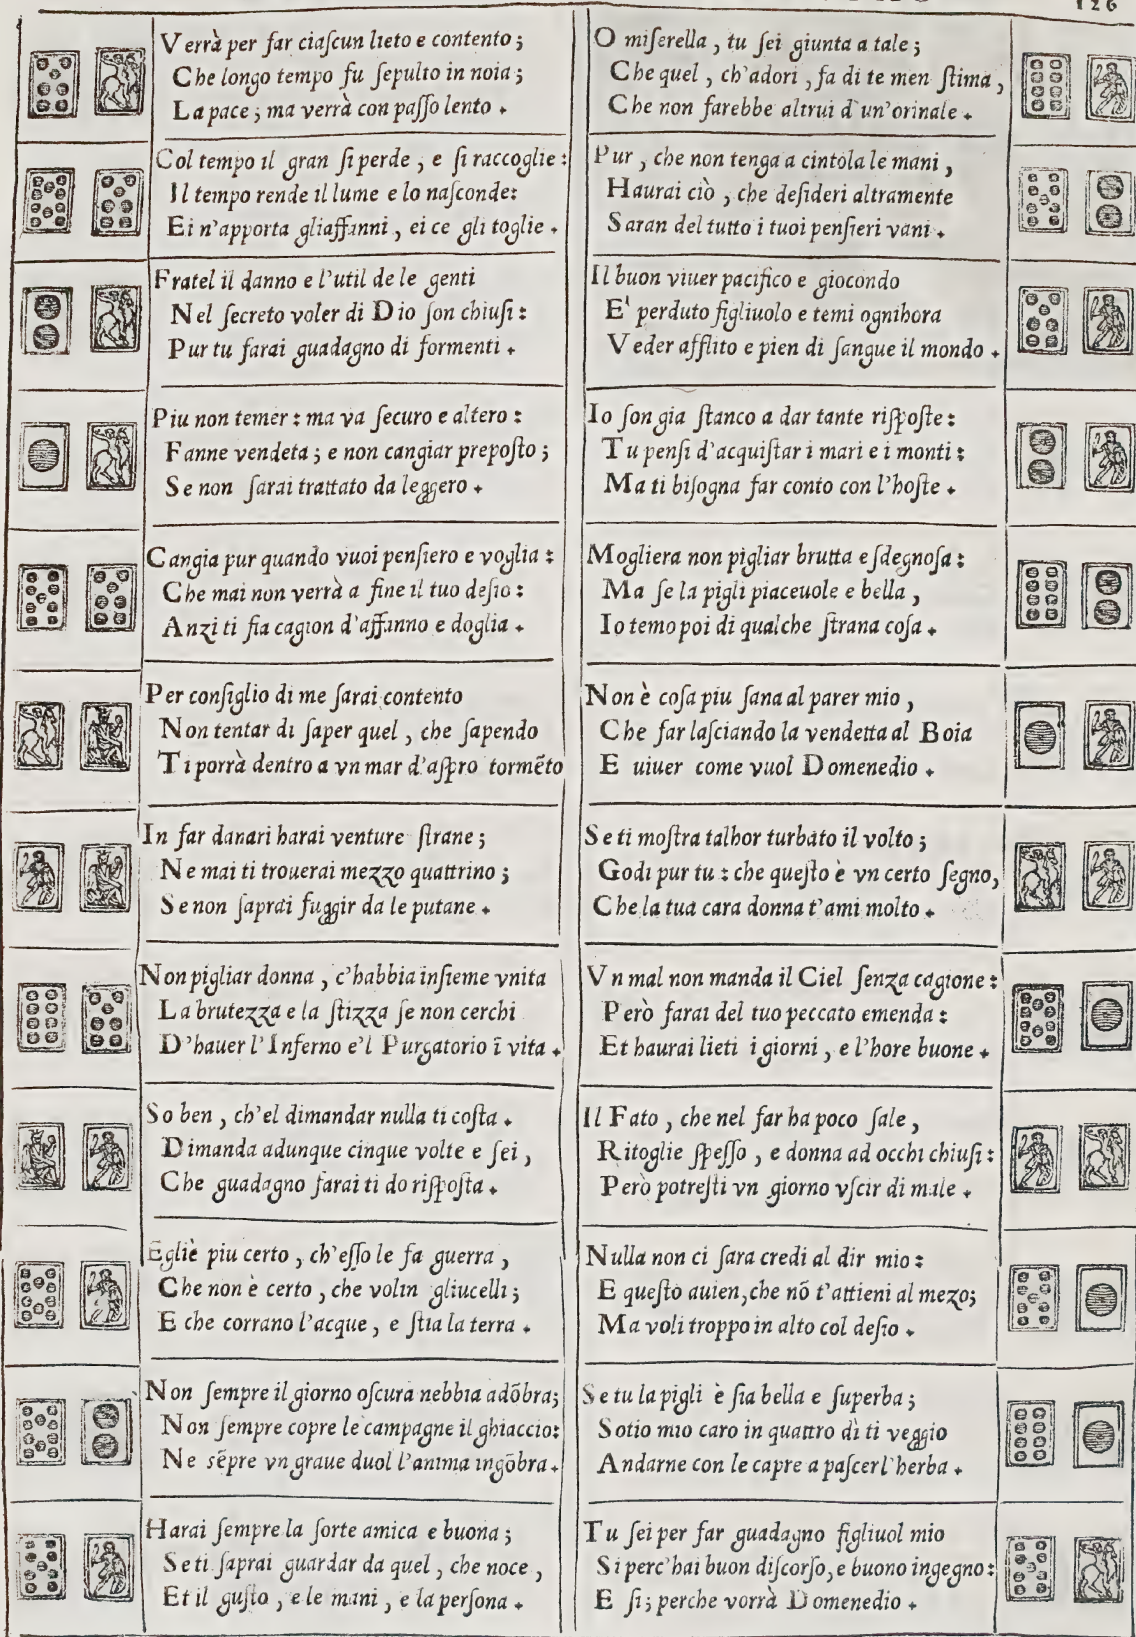 126
Verrà per far ciaſcun lieto e contento;
Che longo tempo fu ſepulto in noia;
La pace; ma verrà con paſſo lento.
Col tempo il gran ſi perde, e ſi raccoglie:
Il tempo rende il lume e lo naſconde:
Ei n'apporta gliaffanni, ei ce gli toglie.
Fratel il danno e l'util de le genti
Nel ſecreto voler di Dio ſon chiuſi:
Pur tu farai guadagno di formenti.
Piu non temer: ma va ſecuro e altero:
Fanne vendeta; e non cangiar prepoſto;
Se non ſarai trattato da leggero.
Cangia pur quando vuoi penſiero e voglia:
Che mai non verrà a fine il tuo deſio:
Anzi ti fia cagion d'affanno e doglia.
Per conſiglio di me ſarai contento
Non tentar di ſaper quel, che ſapendo
Ti porrà dentro a vn mar d'aſpro tormẽto
In far danari harai venture ſtrane;
Ne mai ti trouerai mezzo quattrino;
Se non ſaprai fuggir da le putane.
Non pigliar donna, c'habbia inſieme vnita
La brutezza e la ſtizza ſe non cerchi
D'hauer l'Inferno e'l Purgatorio ĩ vita.
So ben, ch'el dimandar nulla ti coſta.
Dimanda adunque cinque volte e ſei,
Che guadagno farai ti do riſpoſta.
Egliè piu certo, ch'eſſo le fa guerra,
Che non è certo, che volin gliucelli;
E che corrano l'acque, e ſtia la terra.
Non ſempre il giorno oſcura nebbia adõbra;
Non ſempre copre le campagne il ghiaccio:
Ne sẽpre vn graue duol l'anima ingõbra.
Harai ſempre la ſorte amica e buona;
Se ti ſaprai guardar da quel, che noce,
Et il guſto, e le mani, e la perſona.
O miſerella, tu ſei giunta a tale;
Che quel, ch'adori, fa di te men ſtima,
Che non farebbe altrui d'un'orinale.
Pur, che non tenga a cintola le mani,
Haurai ciò, che deſideri altramente
Saran del tutto i tuoi penſieri vani.
Il buon viuer pacifico e giocondo
E' perduto figliuolo e temi ognihora
Veder afflito e pien di ſangue il mondo.
Io ſon gia ſtanco a dar tante riſpoſte:
Tu penſi d'acquiſtar i mari e i monti:
Ma ti biſogna far conto con l'hoſte.
Mogliera non pigliar brutta e ſdegnoſa:
Ma ſe la pigli piaceuole e bella,
Io temo poi di qualche ſtrana coſa.
Non è coſa piu ſana al parer mio,
Che far laſciando la vendetta al Boia
E uiuer come vuol Domenedio.
Se ti moſtra talhor turbato il volto;
Godi pur tu: che queſto è vn certo ſegno,
Che la tua cara donna t'ami molto.
Vn mal non manda il Ciel ſenza cagione:
Però farai del tuo peccato emenda:
Et haurai lieti i giorni, e l'hore buone.
Il Fato, che nel far ha poco ſale,
Ritoglie ſpeſſo, e donna ad occhi chiuſi:
Però potreſti vn giorno vſcir di male.
Nulla non ci ſara credi al dir mio:
E queſto auien, che nõ t'attieni al mezo;
Ma voli troppo in alto col deſio.
Se tu la pigli è ſia bella e ſuperba;
Sotio mio caro in quattro dì ti veggio
Andarne con le capre a paſcer l'herba.
Tu ſei per far guadagno figliuol mio
Si perc'hai buon diſcorſo, e buono ingegno:
E ſi; perche vorrà Domenedio.